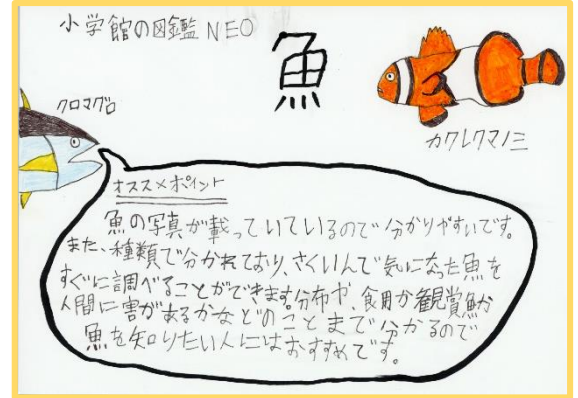 小学館の図鑑 NEO
魚
クロマグロ
カクレクマノミ
オススメポイント
魚の写真が載っていているので分かりやすいです。
また、種類で分かれており、さくいんで気になった魚を
すぐに調べることができます。分布や、食用か観賞魚か
人間に害があるかなどのことまで分かるので
魚を知りたい人にはおすすめです。